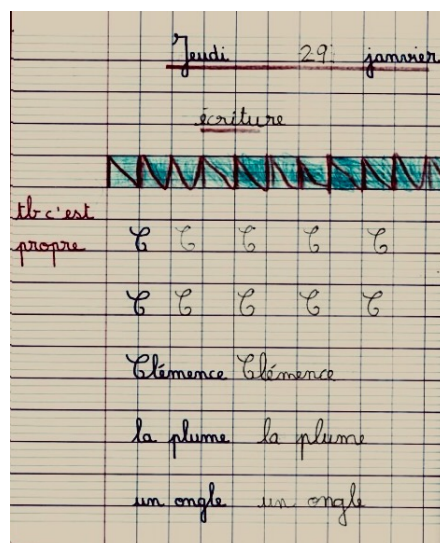 Jeudi 29 janvier
écriture
tb c'est
propre
C C C C C
C C C C C
Clémence Clémence
la plume la plume
un ongle un ongle